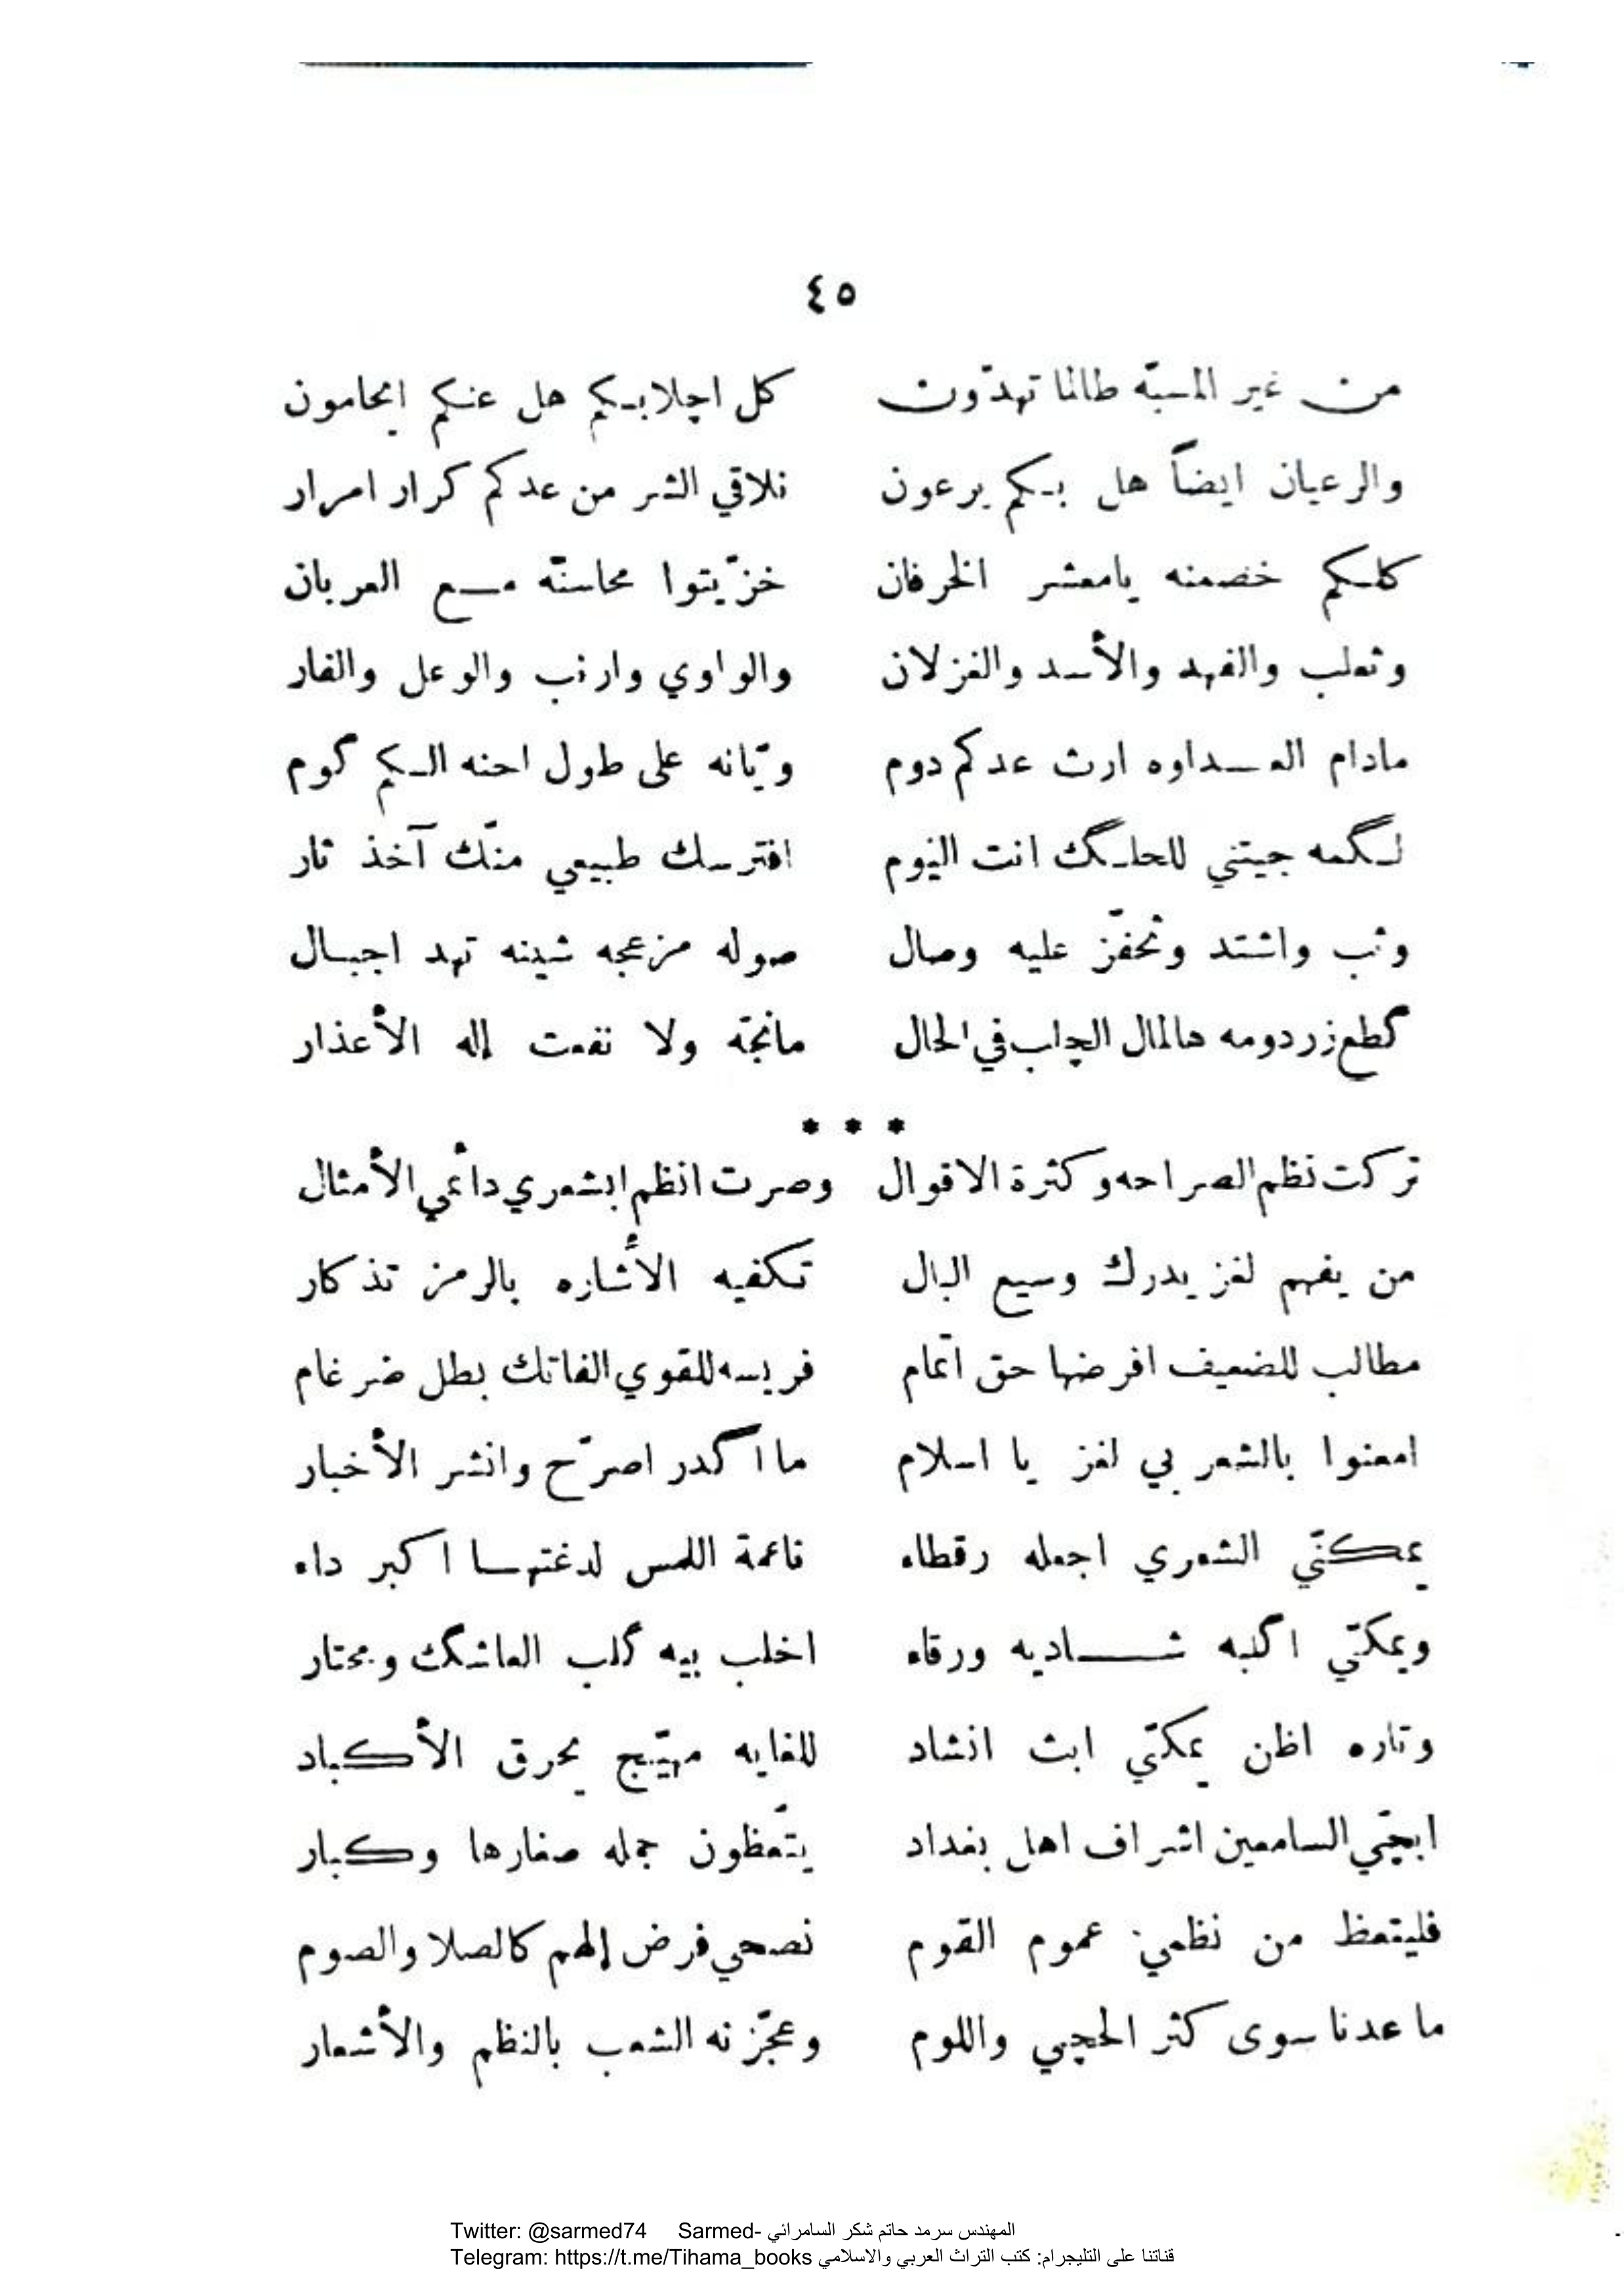 ٤٥
من غير المسبّه طالما تهدّون كل اچلابـكم هل عنـكم ايحامون
والرعيان ايضاً هل بـكم يرعون نلاقي الشر من عدكم كرار امرار
كلـكم خصمنه يامعشر الخرفان خزّيتوا محاسنّه مــع العربان
وثعلب والفهد والأسد والغزلان والواوي وارنب والوعل والفار
مادام العــداوه ارث عدكم دوم ويّانه على طول احنه الـكم گوم
لـگمه جيتني للحلـگ انت اليوم افترسك طبيعي منّك آخذ ثار
وثب واشتد وتحفّز عليه وصال صوله مزعجه شينه تهد اجبـال
گطع زردومه هالمال الچلب في الحال مانجّه ولا نفعت إله الأعذار
* * *
تركت نظم الصراحه وكثرة الاقوال وصرت انظم ابشعري دائمي الأمثال
من يفهم لغز يدرك وسيع البال تـكفيه الأشاره بالرمز تذكار
مطالب للضعيف افرضها حق اتّمام فريسه للقوي الفاتك بطل ضرغام
امعنوا بالشعر بي لغز يا اسلام ما اگدر اصرّح وانشر الأخبار
يمكنّي الشعري اجعله رقطاء ناعمة اللمس لدغتهــا اكبر داء
ويمكنّي اگلبه شـــاديه ورقاء اخلب بيه گلب العاشگ ويحتار
وتاره اظن يمكنّي ابث انشاد للغايه مهيّج يحرق الأكباد
ابچّي السامعين اشراف اهل بغداد يتّعظون جمله صغارها وكبار
فليتعظ من نظمي عموم القوم نصحي فرض إلهم كالصلا والصوم
ما عدنا سوى كثر الحچي واللوم وعجّزنه الشعب بالنظم والأشعار
Twitter: @sarmed74 Sarmed- المهندس سرمد حاتم شكر السامرائي
Telegram: https://t.me/Tihama_books قناتنا على التليجرام: كتب التراث العربي والاسلامي